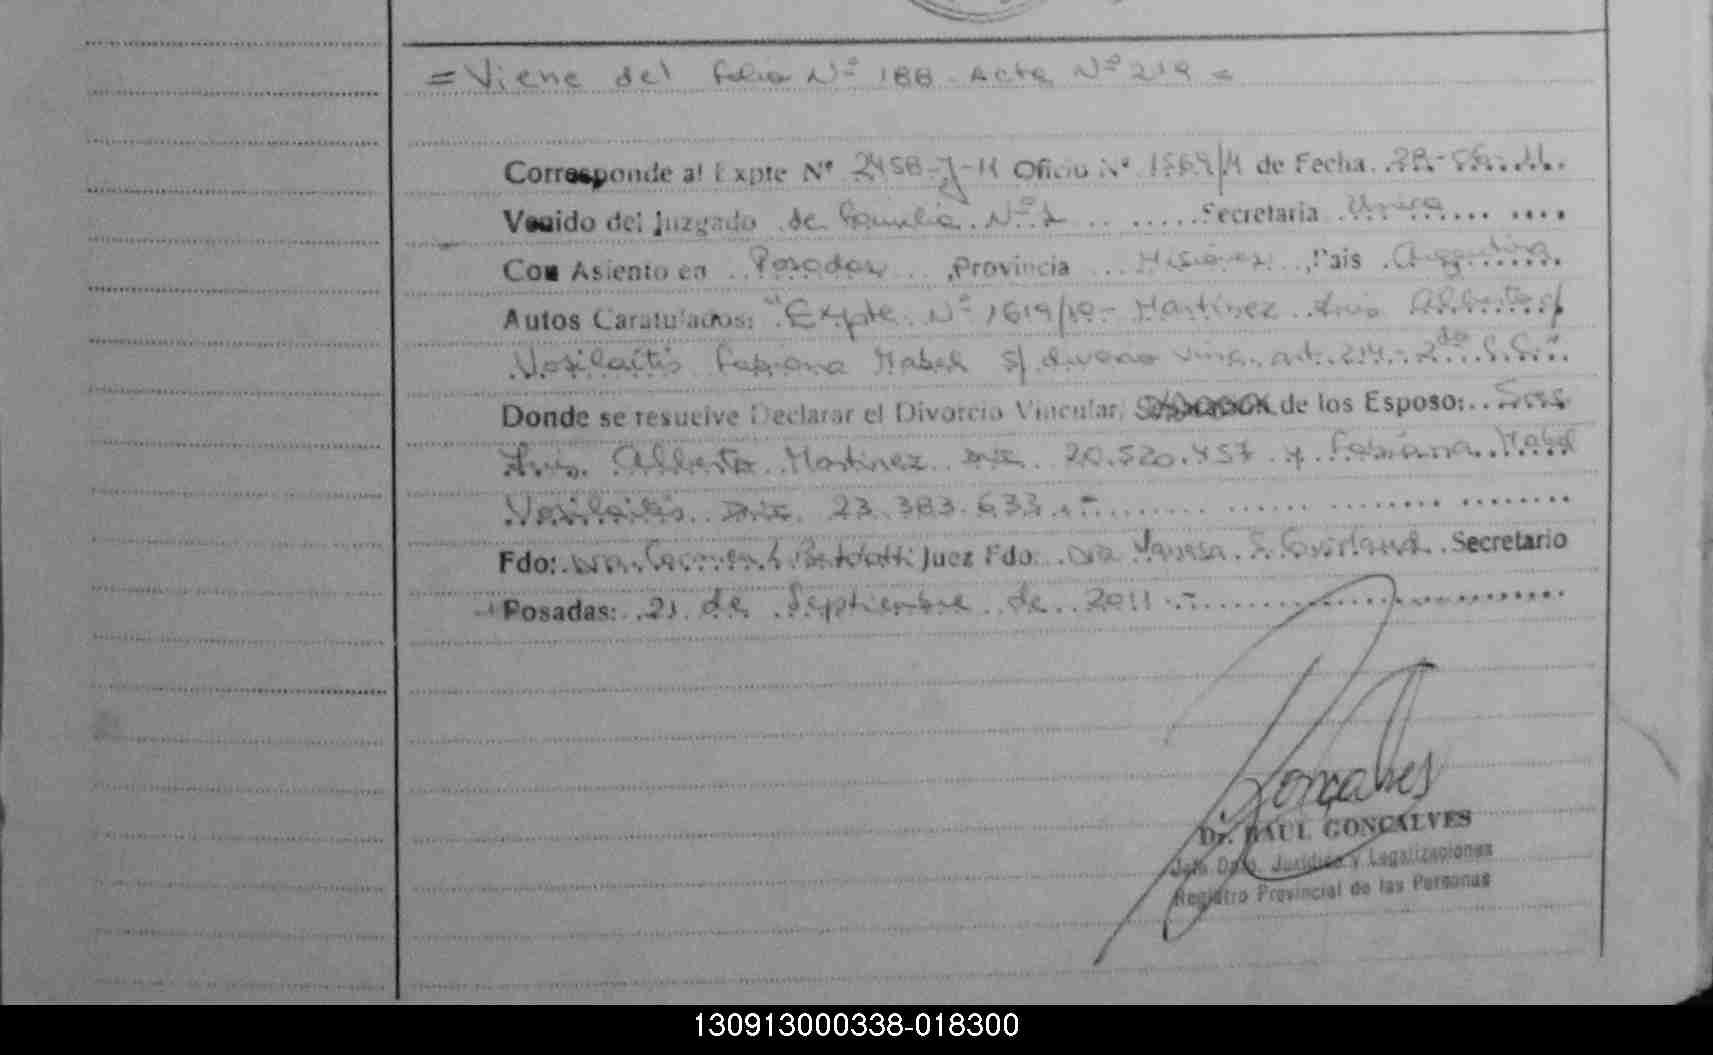 = Viene del folio Nº 188 - Acta Nº 219 =
Corresponde al Expte Nº 2458-J-11 Oficio Nº 1569/11 de Fecha 28-06-11.
Venido del Juzgado de Familia Nº 1 Secretaria Unica
Con Asiento en Posadas, Provincia Misiones, Pais Argentina
Autos Caratulados: "Expte. Nº 1619/10 - Martinez Luis Alberto c/
Vosilaitis Fabiana Mabel s/ divorcio vinc. art. 214 - 2do
Donde se resuelve Declarar el Divorcio Vincular, de los Esposo: Sres
Luis Alberto Martinez DNI. 20.520.457 y Fabiana Mabel
Vosilaitis DNI. 23.383.633.-
Fdo: Dra. Carmen Juez Fdo: Dra Vanesa Secretario
Posadas: 21 de Septiembre de 2011.-
Gonçalves
Dr. RAUL GONÇALVES
Jefe Dpto. Jurídico y Legalizaciones
Registro Provincial de las Personas
130913000338-018300